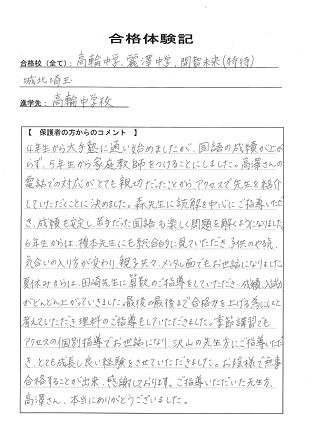 合格体験記
合格校（全て）： 高輪中学、麗澤中学、開智未来（特待）
城北埼玉
進学先： 高輪中学校
【 保護者の方からのコメント 】
4年生から大手塾に通い始めましたが、国語の成績が上が
らず、5年生から家庭教師をつけることにしました。高澤さんの
電話での対応がとても親切だったことからアクセスで先生を紹介
していただくことに決めました。森先生に読解を中心にご指導いただ
き、成績も安定し、苦手だった国語も楽しく問題を解くようになりました。
6年生からは、榎本先生にも総合的に見ていただき、子供のやる気、
気合いの入り方が変わり、親子共々、メンタル面でもお世話になりました。
夏休みからは、田崎先生に算数のご指導をしていただき、成績
がどんどん上がっていきました。最後の最後まで合格力を上げる為に
考えていただき理科のご指導もしていただきました。季節講習でも
アクセスの個別指導でお世話になり、沢山の先生方にご指導いただ
き、とても成長し良い経験をさせていただきました。お陰様で無事
合格することが出来、感謝しております。ご指導いただいた先生方、
高澤さん、本当にありがとうございました。